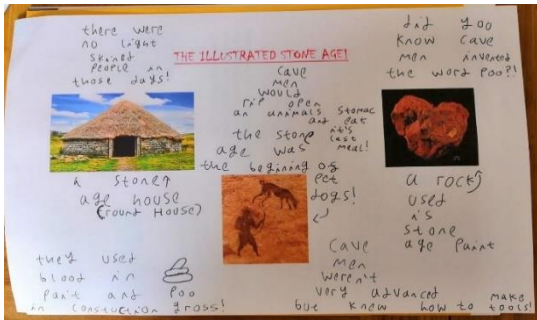 there were
no light
skined
people in
those days!
THE ILLUSTRATED STONE AGE!
did yoo
know cave
men invented
the word poo?!
cave
men
would
rip open
an annimals stomac
and eat
it's
last
meal!
the stone
age was
the beginning of
pet
dogs!
a stone
age house
(round House)
a rock
used
is
stone
age paint
they used
blood in
paint and poo
in construction gross!
Cave
men
weren't
very advanced
but knew how to make
tools!